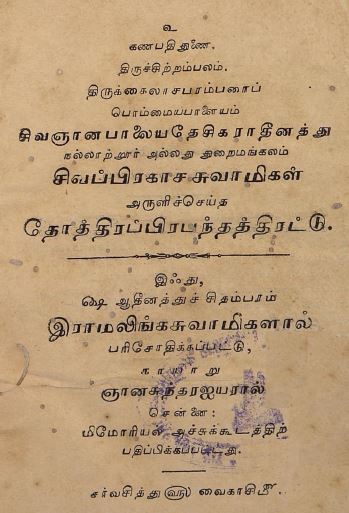 ௨
கணபதிதுணை.
திருச்சிற்றம்பலம்.
திருக்கைலாசபரம்பரைப்
பொம்மையபாளையம்
சிவஞானபாலையதேசிகராதீனத்து
நல்லாற்றூர் அல்லது துறைமங்கலம்
சிவப்பிரகாசசுவாமிகள்
அருளிச்செய்த
தோத்திரப்பிரபந்தத்திரட்டு.
இஃது,
௸ ஆதீனத்துச் சிதம்பரம்
இராமலிங்கசுவாமிகளால்
பரிசோதிக்கப்பட்டு,
காயாறு
ஞானசுந்தரஐயரால்
சென்னை:
மிமோரியல் அச்சுக்கூடத்திற்
பதிப்பிக்கப்பட்டது.
சர்வசித்து௵ வைகாசி௴.